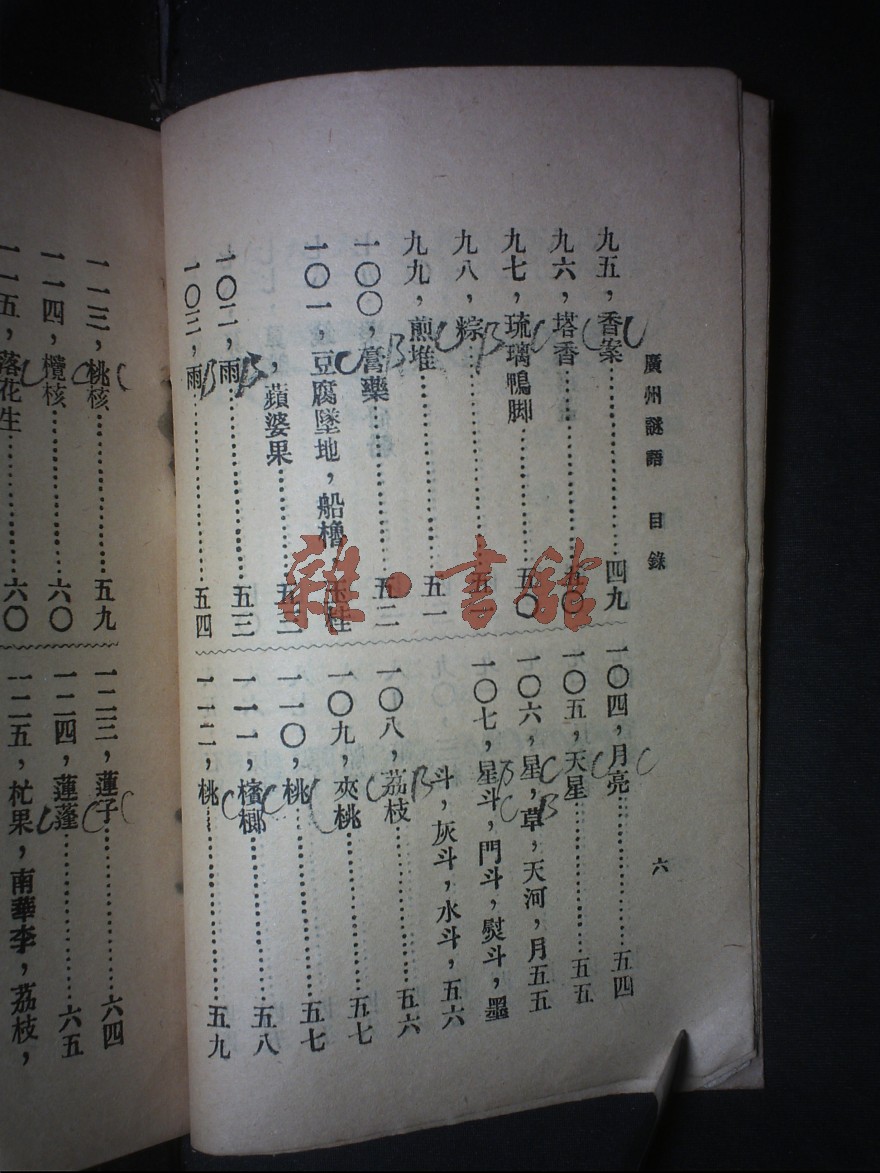 廣州謎語 目錄
六
九五，香案……四九
九六，塔香……五〇
九七，琉璃鴨脚……五〇
九八，粽……五一
九九，煎堆……五一
一〇〇，膏藥……五二
一〇一，豆腐墜地，船櫓，玉桂
，蘋婆果……五三
一〇二，雨……五三
一〇三，雨……五四
一〇四，月亮……五四
一〇五，天星……五五
一〇六，星，草，天河，月五五
一〇七，星斗，門斗，熨斗，墨
斗，灰斗，水斗，五六
一〇八，荔枝……五六
一〇九，夾桃……五七
一一〇，桃……五七
一一一，檳榔……五八
一一二，桃……五九
一一三，桃核……五九
一一四，欖核……六〇
一一五，落花生……六〇
一二三，蓮子……六四
一二四，蓮蓬……六五
一二五，杧果，南華李，荔枝，
雜·書館